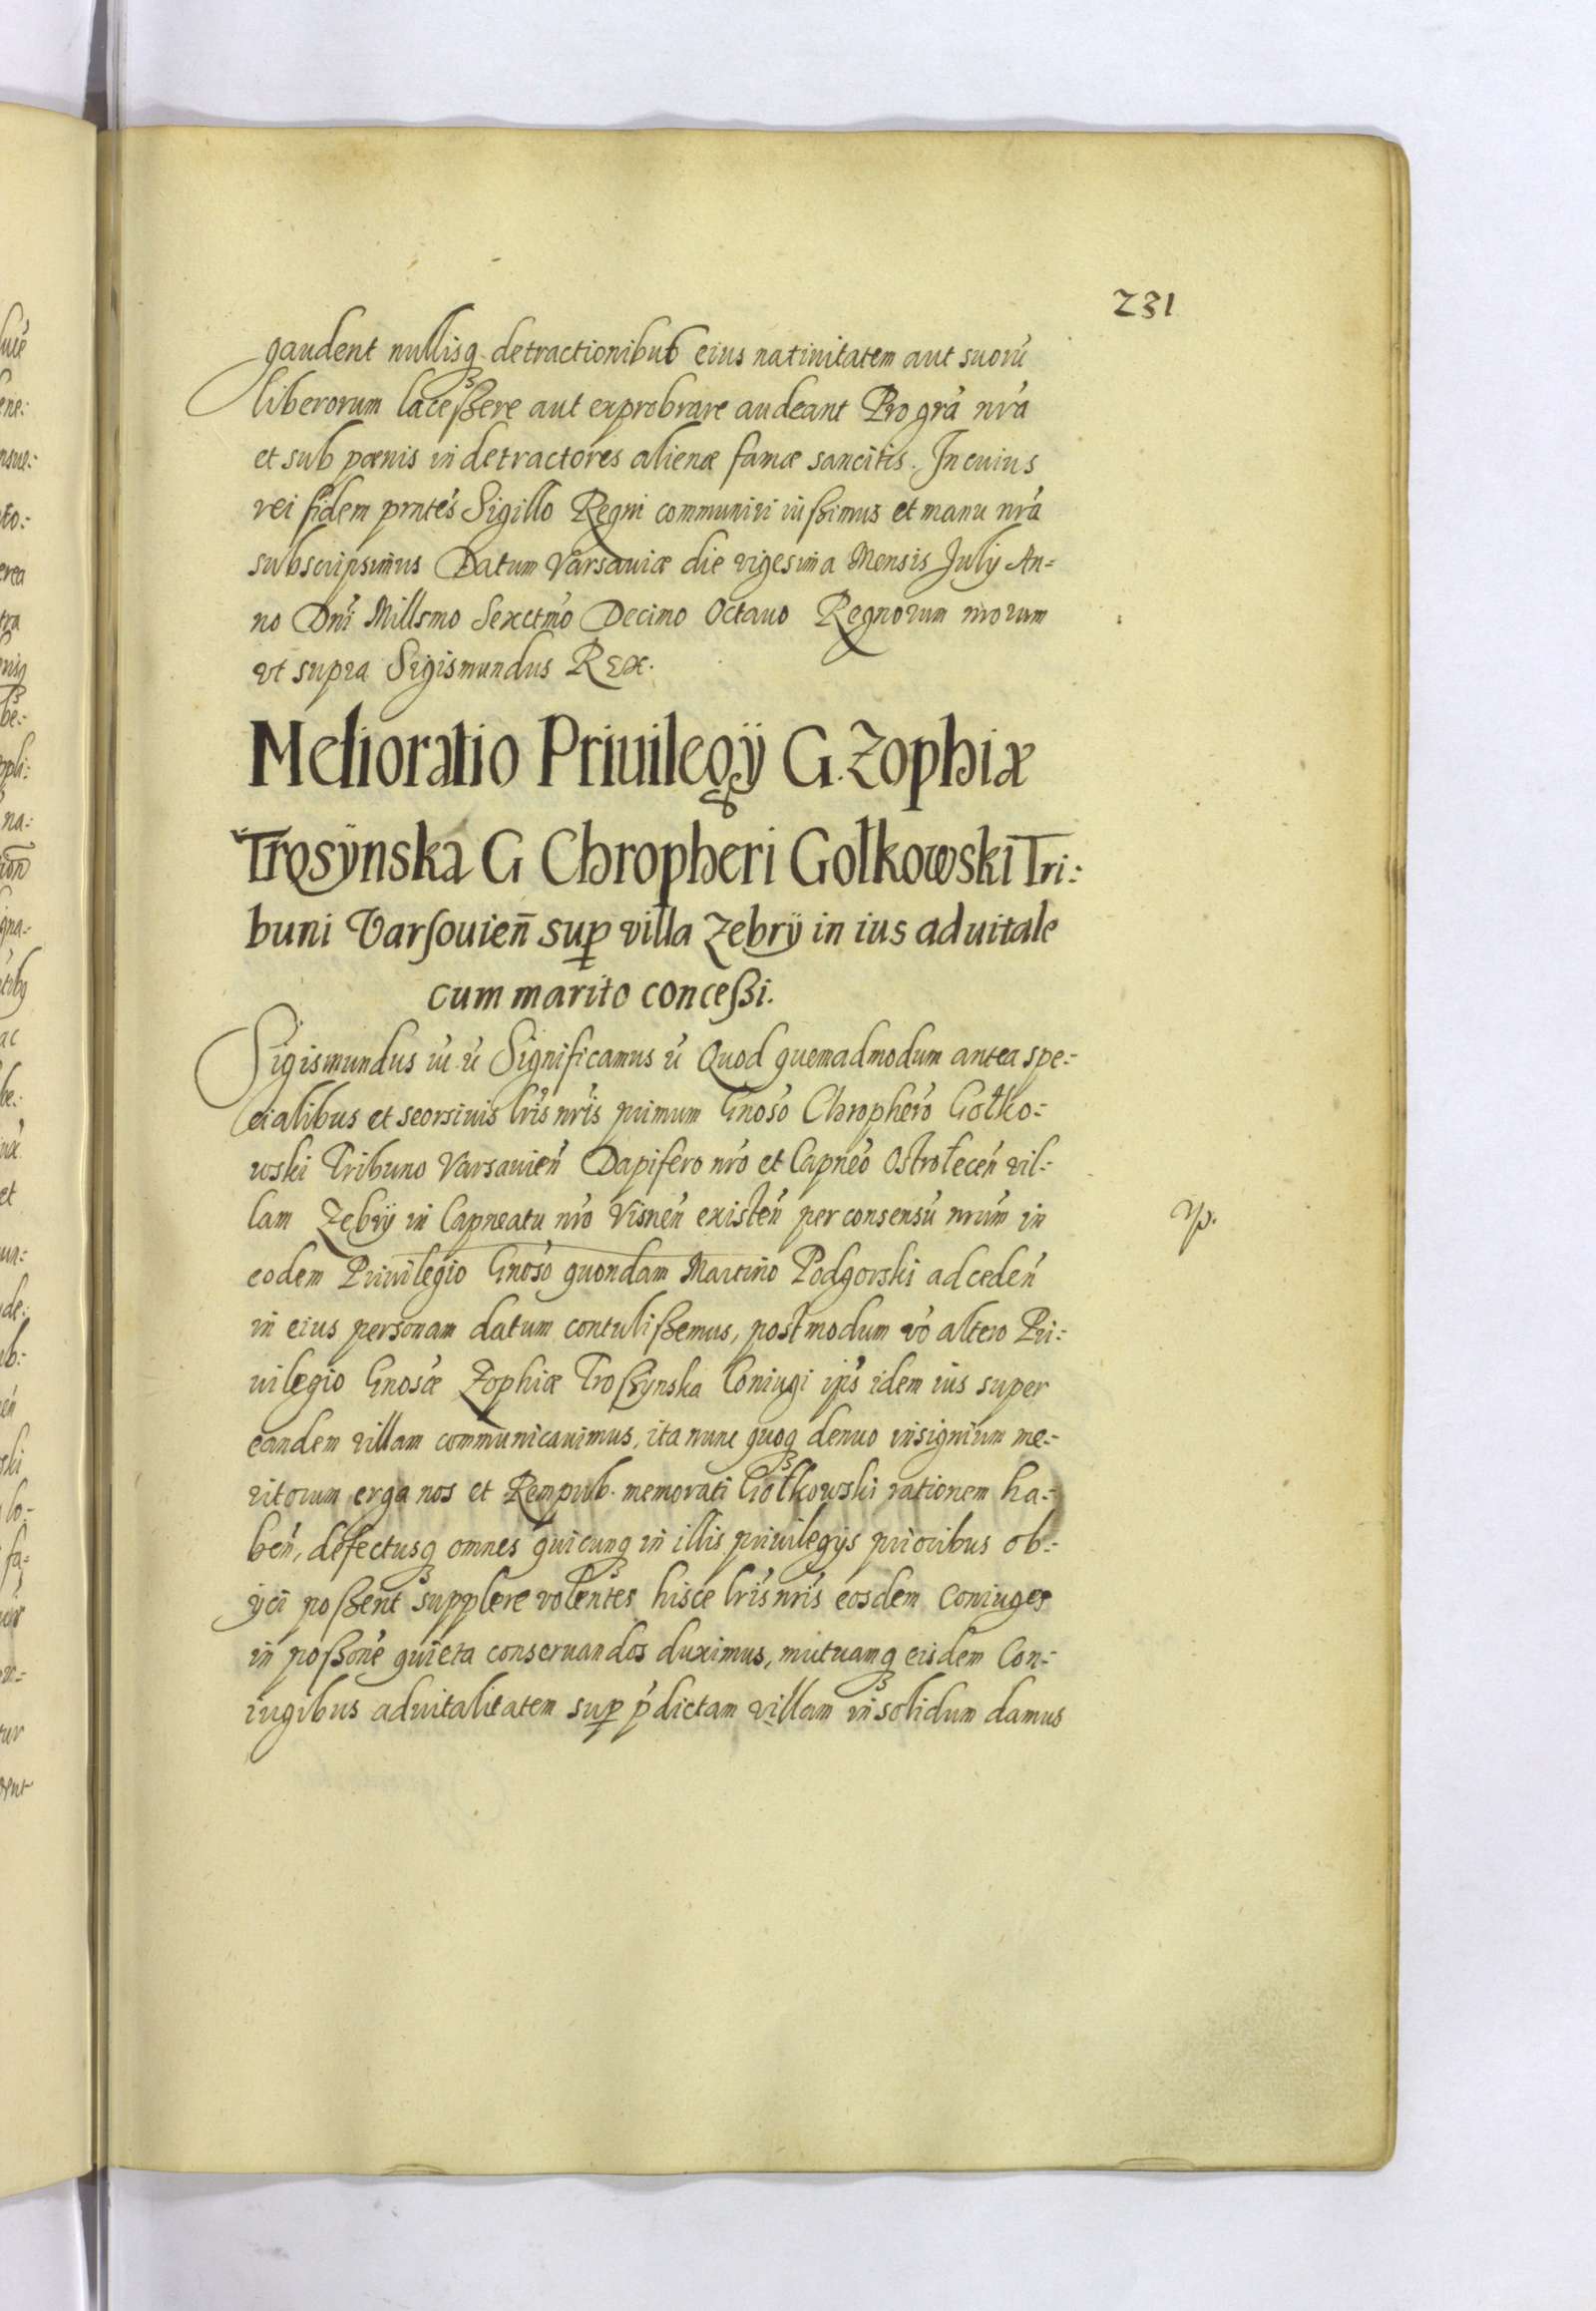 231
gaudent nullisq₃ detractionibus eius natiuitatem aut suorũ
liberorum laceßere aut exprobrare audeant Pro grã nrã
et sub pœnis in detractores alienæ famæ sancitis. In cuius
rei fidem prñtes Sigillo Regni communiri iußimus et manu nrã
subscripsimus Datum Varsauiæ die vigesima Mensis July An=
no Dñi Millsmo Sexctmõ Decimo Octauo Regnorum nrorum
vt supra Sigismundus REX.
Melioratio Priuilegÿ G. Zophiæ
Trosÿnska G Chropheri Gołkowski Tri:
buni Varsouień sup villa Zebrÿ in ius aduitale
cum marito conceßi.
Sigismundus iii. ü Significamus ü Quod quemadmodum antea spe:
cialibus et seorsiuis lrĩs nrĩs primum Gnoso Chrophero Gołko:
wski Tribuno Varsauień Dapifero nrõ et Capneo Ostrołeceń vil:
lam Zebrÿ in Capneatu nrõ Visneń existeń per consensũ nrũm in
eodem Priuilegio Gnoso quondam Martino Podgorski ad cedeń
in eius personam datum contulißemus, postmodum võ altero Pri:
uilegio Gnosæ Zophiæ Troßynska Coniugi ipĩs idem ius super
eandem villam communicauimus, ita nunc quoq₃ denuo insignium me:
ritorum erga nos et Rempub. memorati Gołkowski rationem ha:
beń, defectusq₃ omnes quicunq₃ in illis priuilegijs prioribus ob:
ijci poßent supplere volentes hisce lrĩs nrĩs eosdem Coniuges
in poßone quieta conseruandos duximus, mutuamq₃ eisdem Con:
iugibus aduitalitatem sup p̃dictam villam in solidum damus